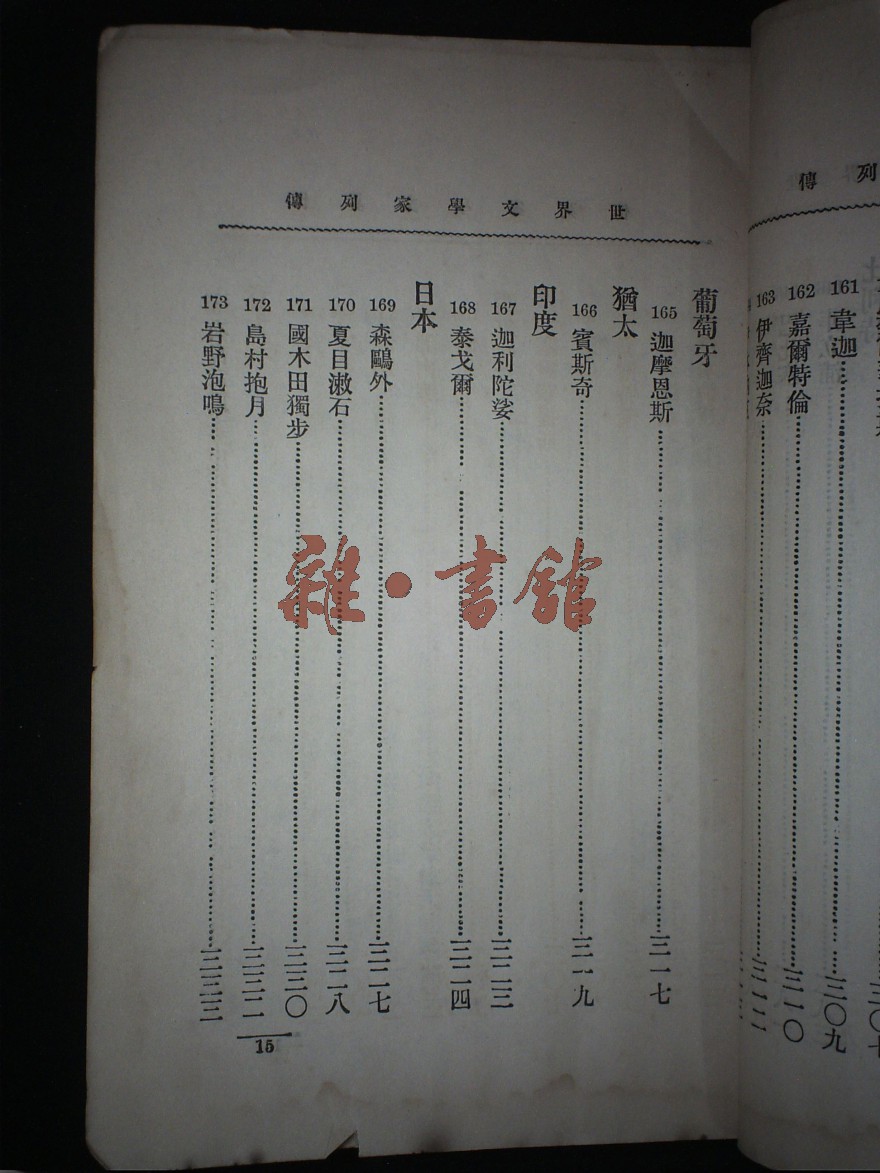 傳列
161 韋迦……三〇九
162 嘉爾特倫……三一〇
163 伊齊迦奈
世界文學家列傳
葡萄牙
165 迦摩恩斯……三一七
猶太
166 賓斯奇……三一九
印度
167 迦利陀娑……三二三
168 泰戈爾……三二四
日本
169 森鷗外……三二七
170 夏目漱石……三二八
171 國木田獨步……三三〇
172 島村抱月……三三二
173 岩野泡鳴……三三三
15
雜·書館